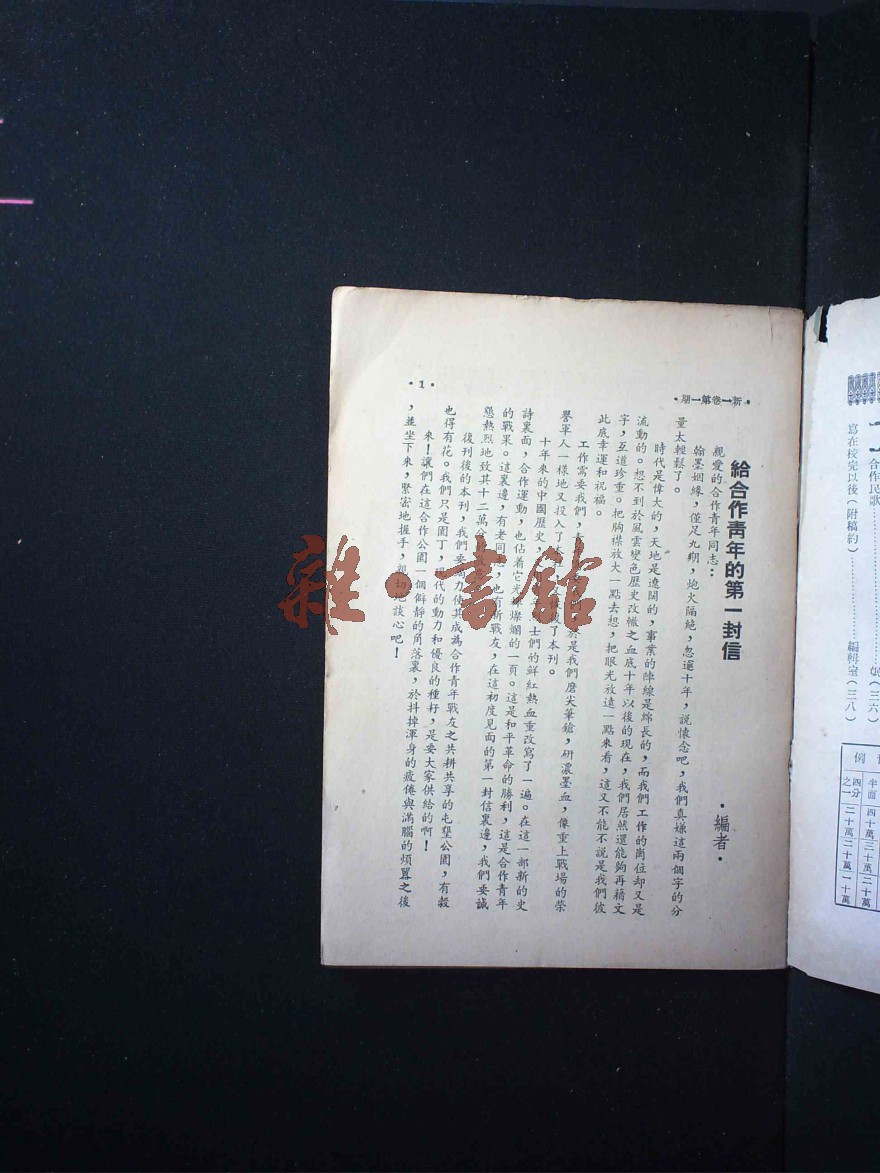 •新一卷第一期•
給合作青年的第一封信
•編者•
親愛的合作青年同志：
翰墨姻緣，僅足九期，炮火隔絶，忽逾十年，說懷念吧，我們真嫌這兩個字的分
量太輕鬆了。
時代是偉大的，天地是遼闊的，事業的陣線是綿長的，而我們工作的崗位却又是
流動的。想不到於風雲變色歷史改轍之血底十年以後的現在，我們居然還能夠再藉文
字，互道珍重。把胸襟放大一點去想，把眼光放遠一點來看，這又不能不說是我們彼
此底幸運和祝福。
工作需要我們，於是我們磨尖筆鎗，研濃墨血，像重上戰場的榮
譽軍人一樣地又投入了了本刊。
十年來的中國歷史，士們的鮮紅熱血重改寫了一遍。在這一部新的史
詩裏面，合作運動，也佔着它光輝燦爛的一頁。這是和平革命的勝利，這是合作青年
的戰果。這裏邊，有老同志，也有新戰友，在這初度見面的第一封信裏邊，我們要誠
懇熱烈地致其十二萬分
復刊後的本刊，我們要努力使其成為合作青年戰友之共耕共享的屯墾公園，有穀
也得有花。我們只是園丁，現代的動力和優良的種籽，是要大家供給的啊！
來！讓們在這合作公園一個僻靜的角落裏，於抖掉渾身的疲倦與滿腦的煩囂之後
，並坐下來，緊密地握手，親切地談心吧！
•1•
雜·書館
合作民歌
（三六）
寫在校完以後（附稿約）
編輯室（三八）
例
半面
四十萬
三十萬
二十萬
四分之一
二十萬
二十萬
一十萬